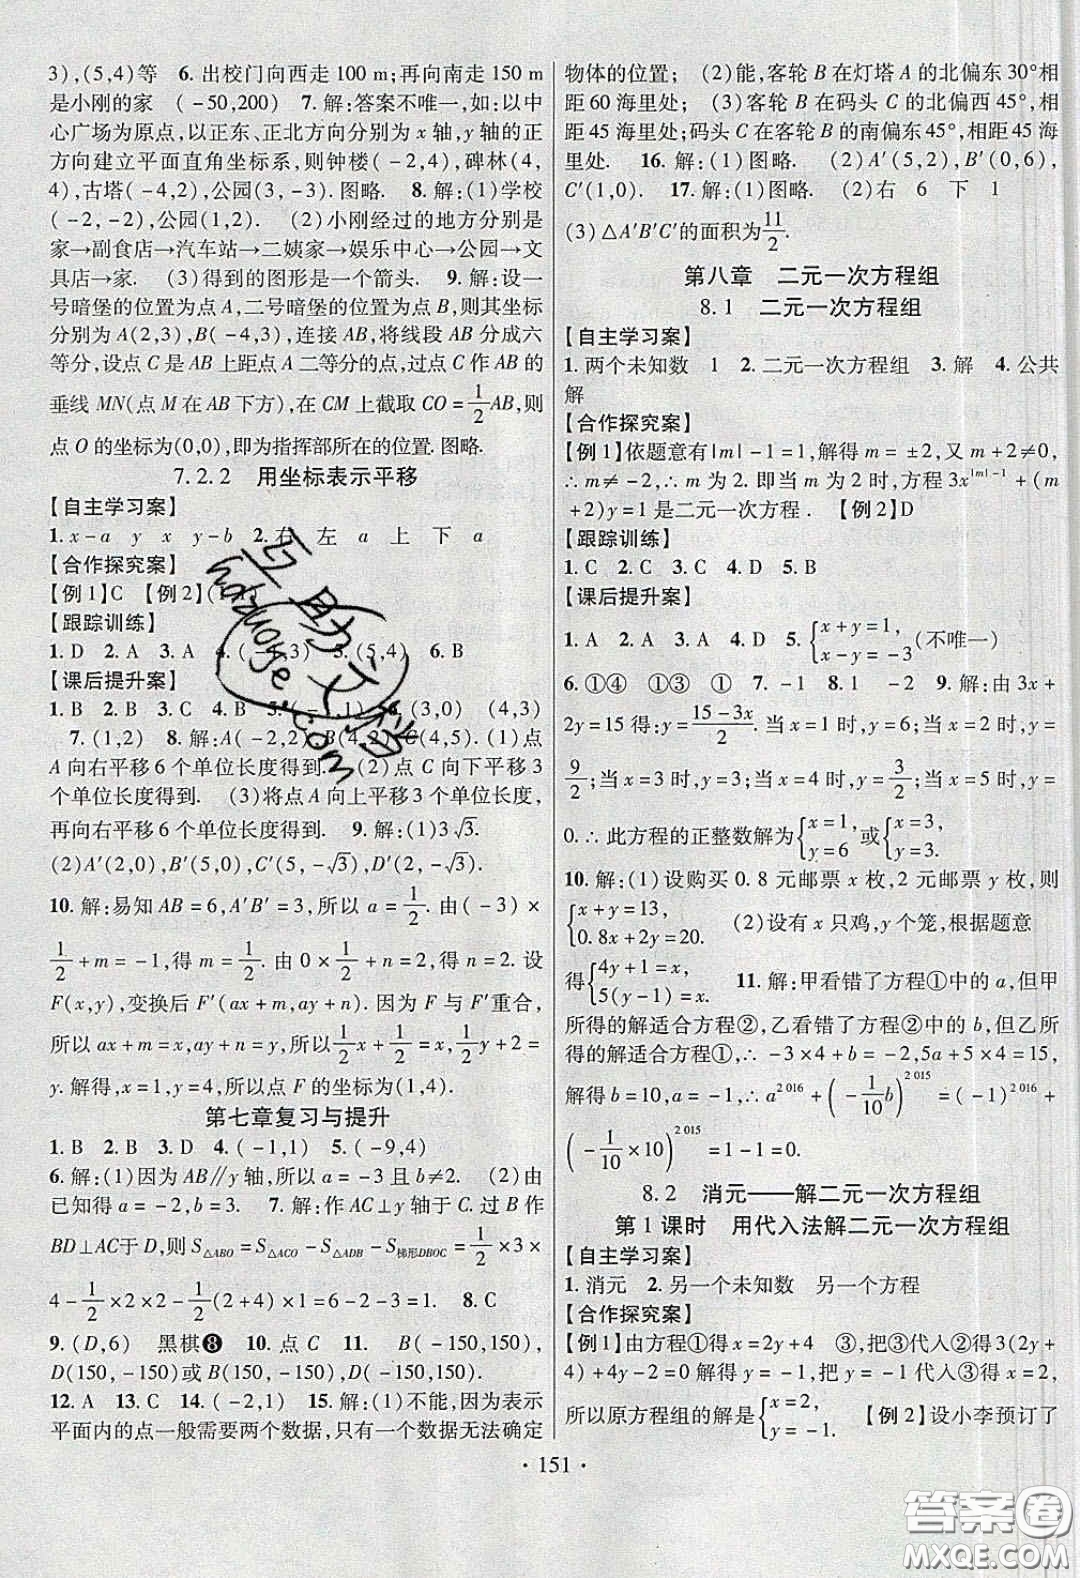 3),(5,4)等　6. 出校门向西走 100 m;再向南走 150 m
是小刚的家　(-50,200)　7. 解:答案不唯一,如:以中
心广场为原点,以正东、正北方向分别为 x 轴,y 轴的正
方向建立平面直角坐标系,则钟楼(-2,4),碑林(4,
4),古塔(-4,2),公园(3,-3).图略.　8. 解:(1)学校
(-2,-2),公园(1,2).　(2)小刚经过的地方分别是
家→副食店→汽车站→二姨家→娱乐中心→公园→文
具店→家.　(3)得到的图形是一个箭头.　9. 解:设一
号暗堡的位置为点 A,二号暗堡的位置为点 B,则其坐标
分别为 A(2,3),B(-4,3),连接 AB,将线段 AB 分成六
等分,设点 C 是 AB 上距点 A 二等分的点,过点 C 作 AB 的
垂线 MN(点 M 在 AB 下方),在 CM 上截取 CO=1/2AB,则
点 O 的坐标为(0,0),即为指挥部所在的位置.图略.
7.2.2　用坐标表示平移
【自主学习案】
1. x-a　y　x　y-b　2. 右　左　a　上　下　a
【合作探究案】
【例1】C　【例2】(
【跟踪训练】
1. D　2. A　3. A　4. (　3)　5. (5,4)　6. B
【课后提升案】
1. B　2. B　3. C　4. B　5. (-1,1)　6. (3,0)　(4,3)
7. (1,2)　8. 解:A(-2,2),B(4,2),C(4,5). (1)点
A 向右平移 6 个单位长度得到.　(2)点 C 向下平移 3
个单位长度得到.　(3)将点 A 向上平移 3 个单位长度,
再向右平移 6 个单位长度得到.　9. 解:(1)3√3.
(2)A′(2,0),B′(5,0),C′(5,-√3),D′(2,-√3).
10. 解:易知 AB=6,A′B′=3,所以 a=1/2. 由(-3)×
1/2+m=-1,得 m=1/2. 由 0×1/2+n=2,得 n=2. 设
F(x,y),变换后 F′(ax+m,ay+n). 因为 F 与 F′重合,
所以 ax+m=x,ay+n=y. 所以1/2x+1/2=x,1/2y+2=
y. 解得,x=1,y=4,所以点 F 的坐标为(1,4).
第七章复习与提升
1. B　2. B　3. D　4. (-1,1)　5. (-9,4)
6. 解:(1)因为 AB∥y 轴,所以 a=-3 且 b≠2.　(2)由
已知得 a=-2,b=2.　7. 解:作 AC⊥y 轴于 C. 过 B 作
BD⊥AC 于 D,则 S△ABO=S△ACO-S△ADB-S梯形DBOC=1/2×3×
4-1/2×2×2-1/2(2+4)×1=6-2-3=1.　8. C
9. (D,6)　黑棋❽　10. 点 C　11.　B(-150,150),
D(150,-150)或 B(150,150),D(-150,-150)
12. A　13. C　14. (-2,1)　15. 解:(1)不能,因为表示
平面内的点一般需要两个数据,只有一个数据无法确定
物体的位置;　(2)能,客轮 B 在灯塔 A 的北偏东30°相
距 60 海里处;　(3)客轮 B 在码头 C 的北偏西 45°,相
距 45 海里处;码头 C 在客轮 B 的南偏东 45°,相距 45 海
里处.　16. 解:(1)图略.　(2)A′(5,2),B′(0,6),
C′(1,0).　17. 解:(1)图略.　(2)右　6　下　1
(3)△A′B′C′的面积为11/2.
第八章　二元一次方程组
8.1　二元一次方程组
【自主学习案】
1. 两个未知数　1　2. 二元一次方程组　3. 解　4. 公共
解
【合作探究案】
【例1】依题意有|m|-1=1,解得 m=±2,又 m+2≠0,
∴m≠-2,∴m=2. 即当 m=2 时,方程 3x^|m|-1+(m
+2)y=1 是二元一次方程.　【例2】D
【跟踪训练】
1. C　2. C　3. C　4. D　5. B
【课后提升案】
1. A　2. D　3. A　4. D　5. {x+y=1, x-y=-3 (不唯一)
6. ①④　①③　①　7. -1　8. 1　-2　9. 解:由 3x+
2y=15 得:y=(15-3x)/2. 当 x=1 时,y=6;当 x=2 时,y=
9/2;当 x=3 时,y=3;当 x=4 时,y=3/2;当 x=5 时,y=
0.∴此方程的正整数解为{x=1, y=6 或{x=3, y=3.
10. 解:(1)设购买 0.8 元邮票 x 枚,2 元邮票 y 枚,则
{x+y=13, 0.8x+2y=20.　(2)设有 x 只鸡,y 个笼,根据题意
得{4y+1=x, 5(y-1)=x.　11. 解:甲看错了方程①中的 a,但甲
所得的解适合方程②,乙看错了方程②中的 b,但乙所
得的解适合方程①,∴-3×4+b=-2,5a+5×4=15,
解得 b=10,a=-1,∴a^2016+(-1/10b)^2015=(-1)^2016+
(-1/10×10)^2015=1-1=0.
8.2　消元——解二元一次方程组
第 1 课时　用代入法解二元一次方程组
【自主学习案】
1. 消元　2. 另一个未知数　另一个方程
【合作探究案】
【例1】由方程①得 x=2y+4　③,把③代入②得 3(2y+
4)+4y-2=0 解得 y=-1,把 y=-1 代入③得 x=2,
所以原方程组的解是{x=2, y=-1.　【例2】设小李预订了
· 151 ·
答案圈
MXQE.COM